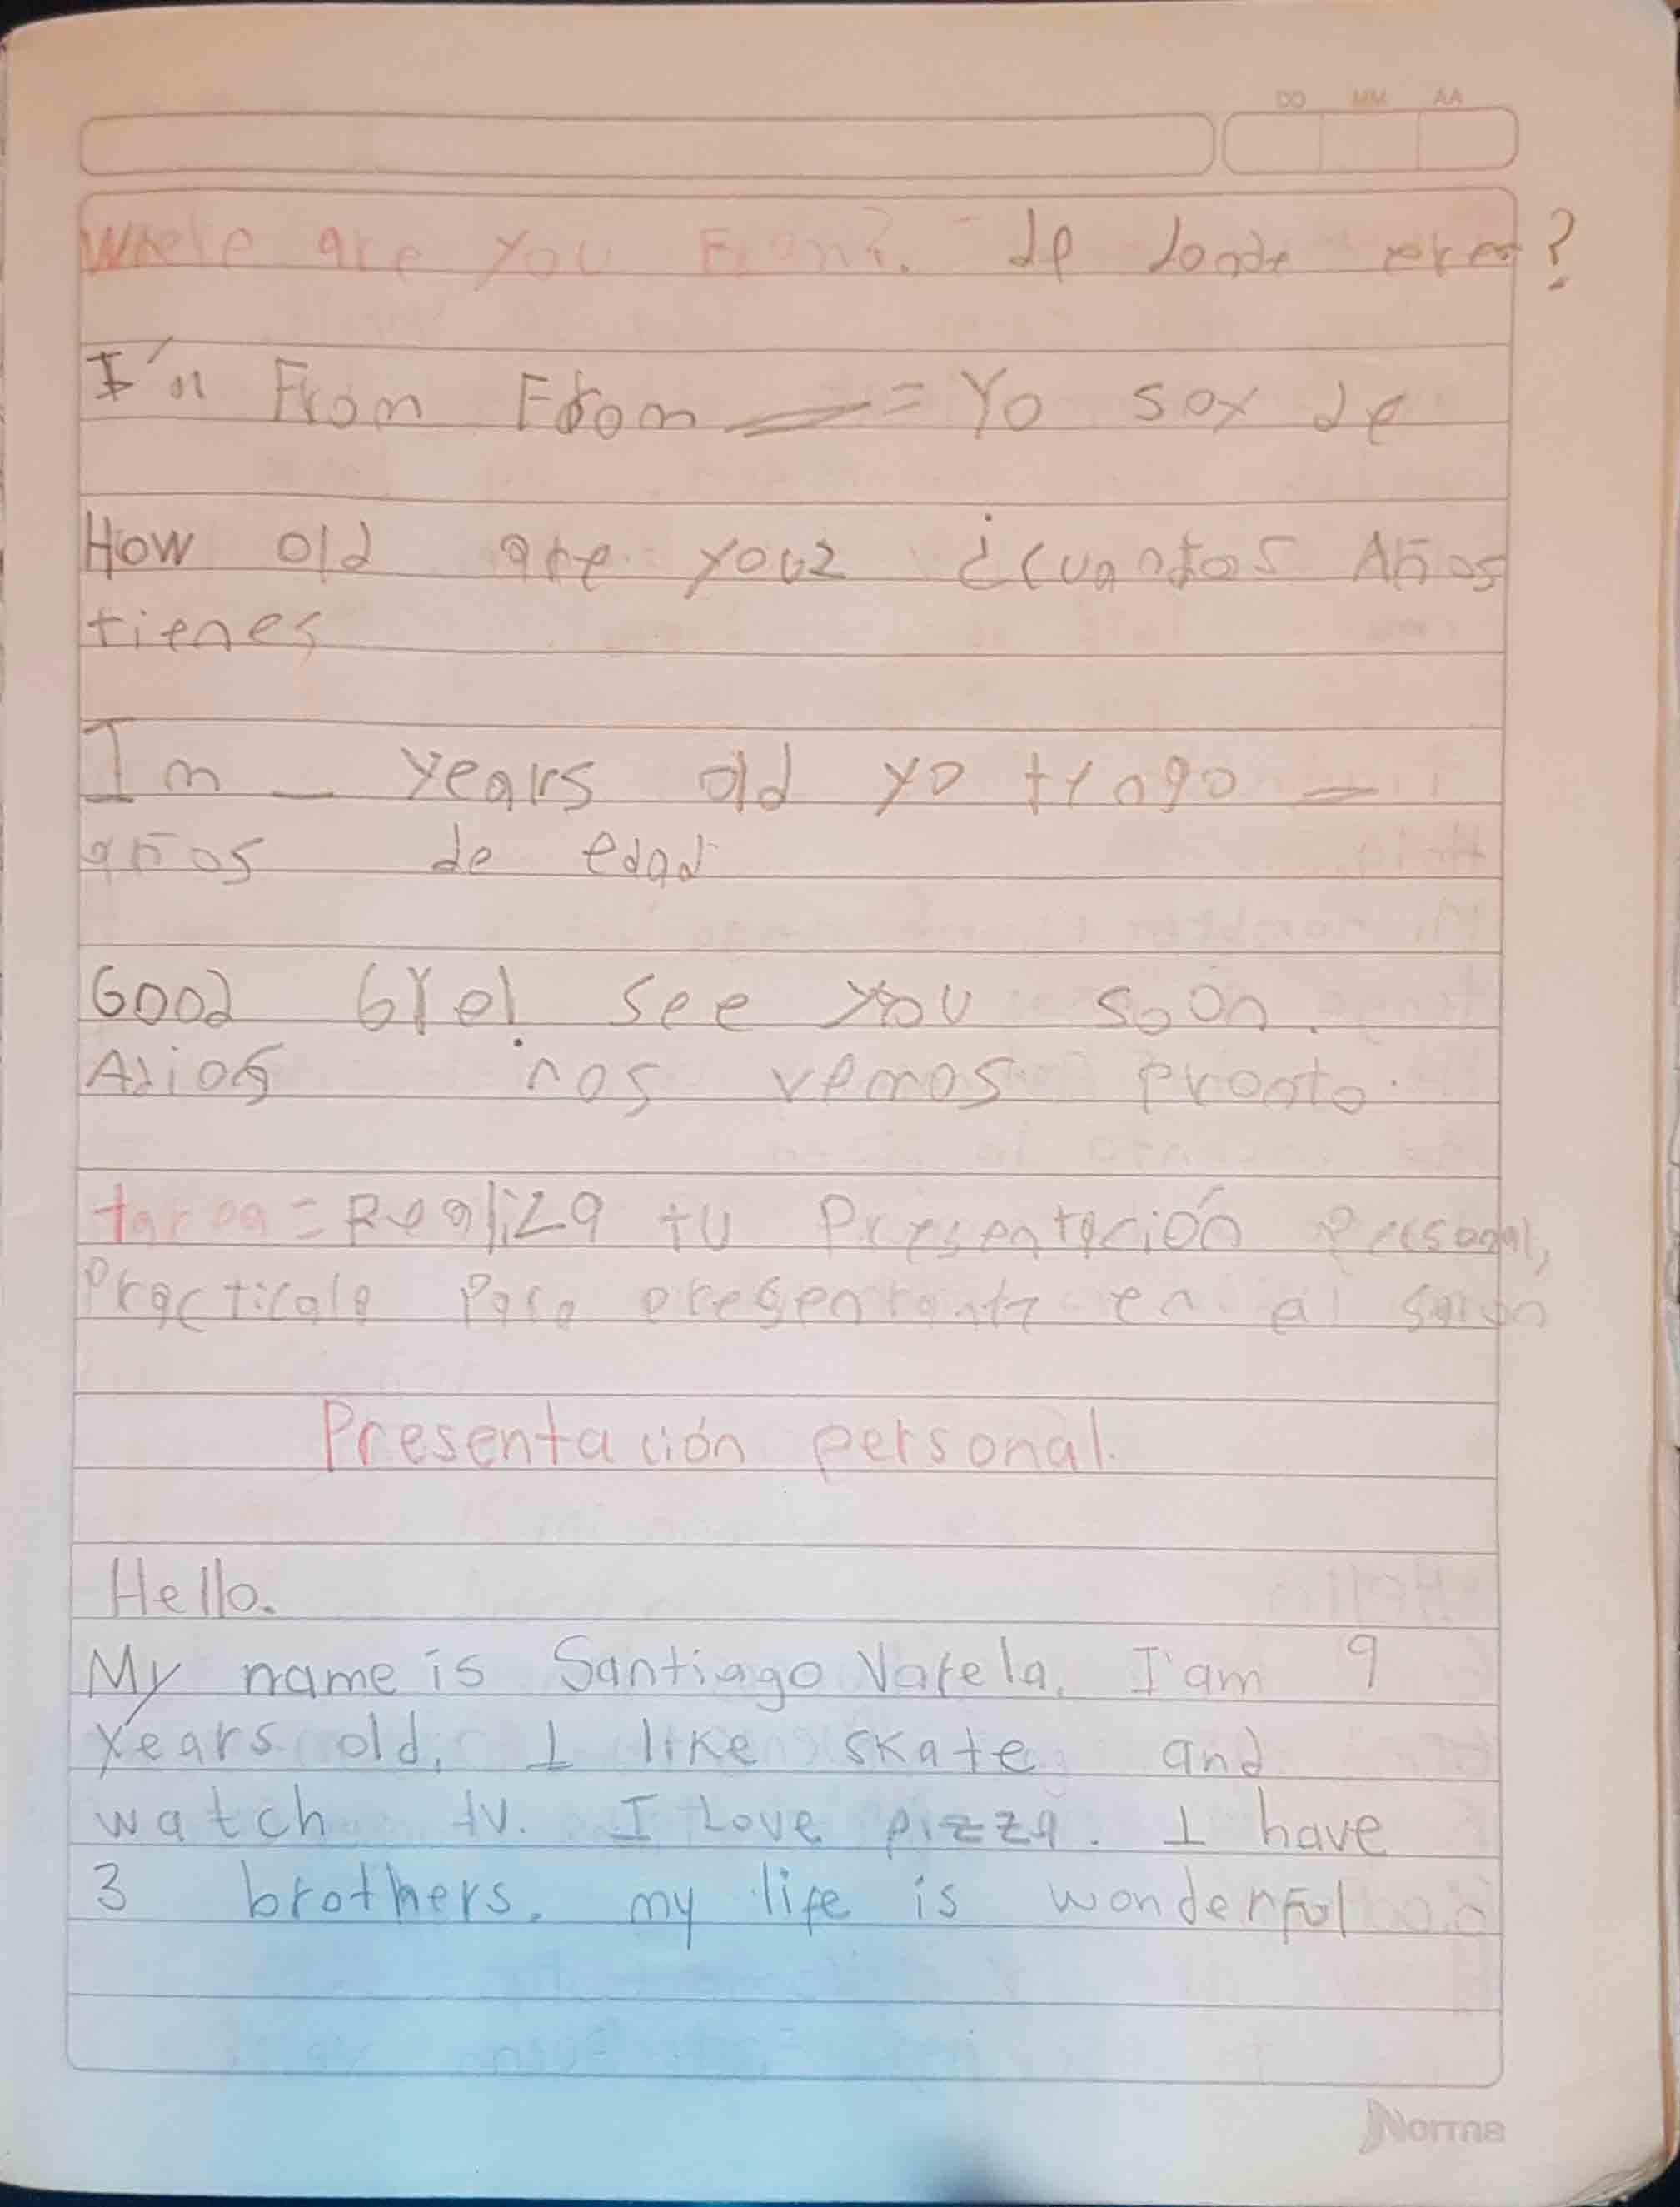 DD MM AA
Where are you From? de donde eres?
I'm From From = Yo soy de
How old are you? ¿cuantos Años
tienes
Im _ years old yo tengo _
años de edad
Good bye! see you soon.
Adios ¡nos vemos pronto.
tarea = Realiza tu Presentación Personal,
Practicala Para en al salon
Presentación personal.
Hello.
My name is Santiago Varela. I'am 9
years old, I like skate and
watch tv. I Love pizza. I have
3 brothers. my life is wonderful
Norma